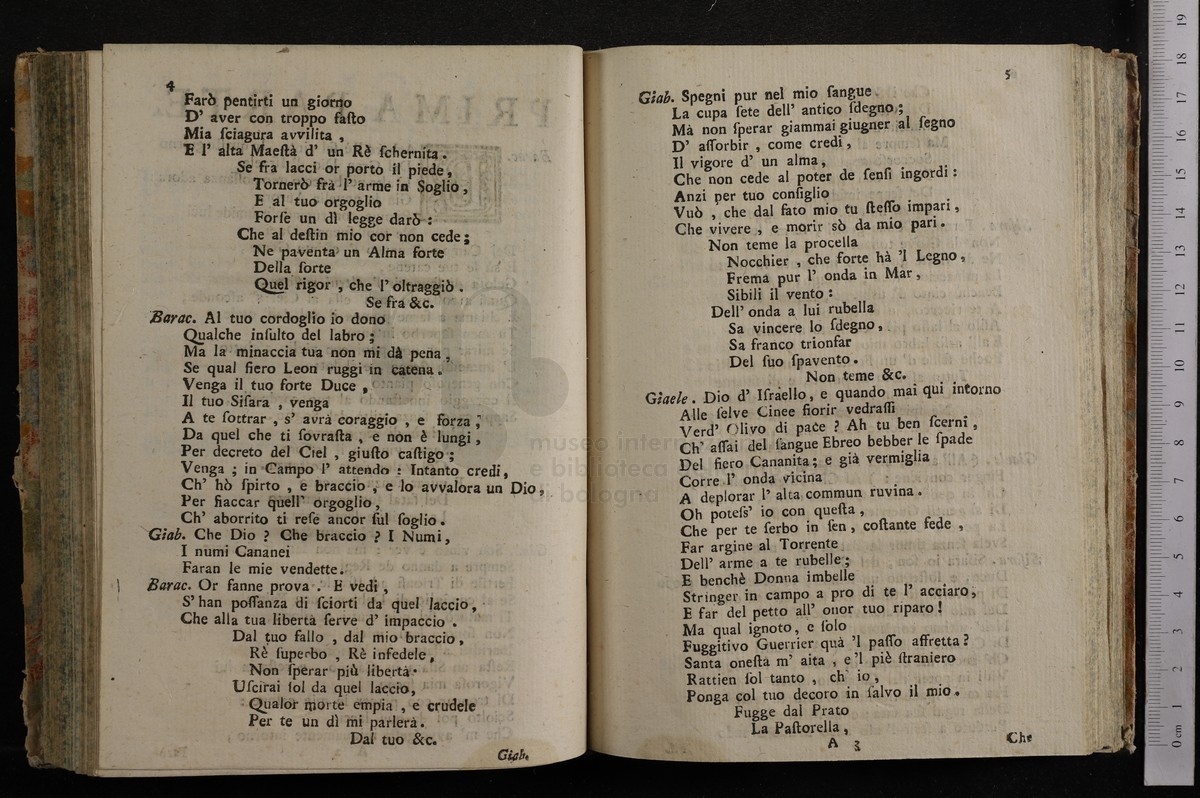 4
Farò pentirti un giorno
D' aver con troppo faſto
Mia ſciagura avvilita ,
E l' alta Maeſtà d' un Rè ſchernita .
Se fra lacci or porto il piede ,
Tornerò frà l' arme in Soglio ,
E al tuo orgoglio
Forſe un dì legge darò :
Che al deſtin mio cor non cede ;
Ne paventa un Alma forte
Della ſorte
Quel rigor , che l' oltraggiò .
Se fra &c.
Barac. Al tuo cordoglio io dono
Qualche inſulto del labro ;
Ma la minaccia tua non mi dà pena ,
Se qual fiero Leon ruggi in catena .
Venga il tuo forte Duce ,
Il tuo Siſara , venga
A te ſottrar , s' avrà coraggio , e forza ;
Da quel che ti ſovraſta , e non è lungi ,
Per decreto del Ciel , giuſto caſtigo ;
Venga ; in Campo l' attendo : Intanto credi ,
Ch' hò ſpirto , e braccio , e lo avvalora un Dio ,
Per fiaccar quell' orgoglio ,
Ch' aborrito ti reſe ancor ſul ſoglio .
Giab. Che Dio ? Che braccio ? I Numi ,
I numi Cananei
Faran le mie vendette .
Barac. Or fanne prova . E vedi ,
S' han poſſanza di ſciorti da quel laccio ,
Che alla tua libertà ſerve d' impaccio .
Dal tuo fallo , dal mio braccio ,
Rè ſuperbo , Rè infedele ,
Non ſperar più libertà .
Uſcirai ſol da quel laccio ,
Qualor morte empia , e crudele
Per te un dì mi parlerà .
Dal tuo &c.
Giab.
5
Giab. Spegni pur nel mio ſangue
La cupa ſete dell' antico ſdegno ;
Mà non ſperar giammai giugner al ſegno
D' aſſorbir , come credi ,
Il vigore d' un alma ,
Che non cede al poter de ſenſi ingordi :
Anzi per tuo conſiglio
Vuò , che dal fato mio tu ſteſſo impari ,
Che vivere , e morir sò da mio pari .
Non teme la procella
Nocchier , che forte hà 'l Legno ,
Frema pur l' onda in Mar ,
Sibili il vento :
Dell' onda a lui rubella
Sa vincere lo ſdegno ,
Sa franco trionfar
Del ſuo ſpavento .
Non teme &c.
Giaele . Dio d' Iſraello , e quando mai qui intorno
Alle ſelve Cinee fiorir vedraſſi
Verd' Olivo di pace ? Ah tu ben ſcerni ,
Ch' aſſai del ſangue Ebreo bebber le ſpade
Del fiero Cananita ; e già vermiglia
Corre l' onda vicina
A deplorar l' alta commun ruvina .
Oh poteſs' io con queſta ,
Che per te ſerbo in ſen , coſtante fede ,
Far argine al Torrente
Dell' arme a te rubelle ;
E benchè Donna imbelle
Stringer in campo a pro di te l' acciaro ,
E far del petto all' onor tuo riparo !
Ma qual ignoto , e ſolo
Fuggitivo Guerrier quà 'l paſſo affretta ?
Santa oneſtà m' aita , e 'l piè ſtraniero
Rattien ſol tanto , ch' io ,
Ponga col tuo decoro in ſalvo il mio .
Fugge dal Prato
La Paſtorella ,
A 3
Che